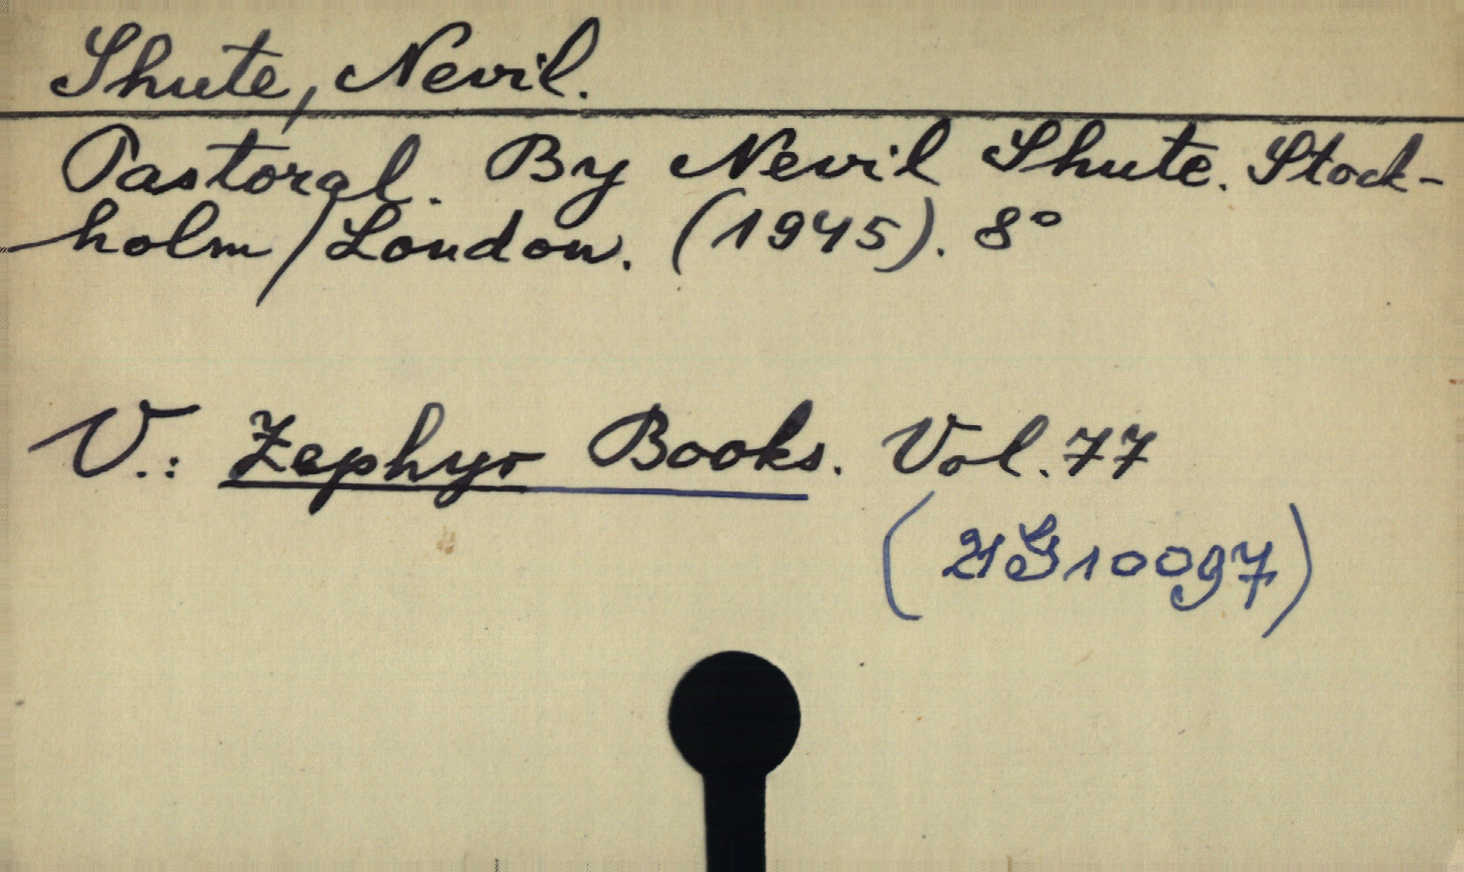 Shute, Nevil.
Pastoral. By Nevil Shute. Stock-
holm/London. (1945). 8°
V.: Zephyr Books. Vol. 77
(21G10097)